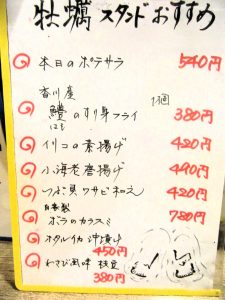 牡蠣スタンドおすすめ
本日のポテサラ 540円
香川産
鱧のすり身フライ 1個 380円
はも
イリコの素揚げ 420円
小海老唐揚げ 490円
つぶ貝ワサビ和え 420円
自家製
ボラのカラスミ 780円
ホタルイカ沖漬け 450円
わさび風味枝豆 380円